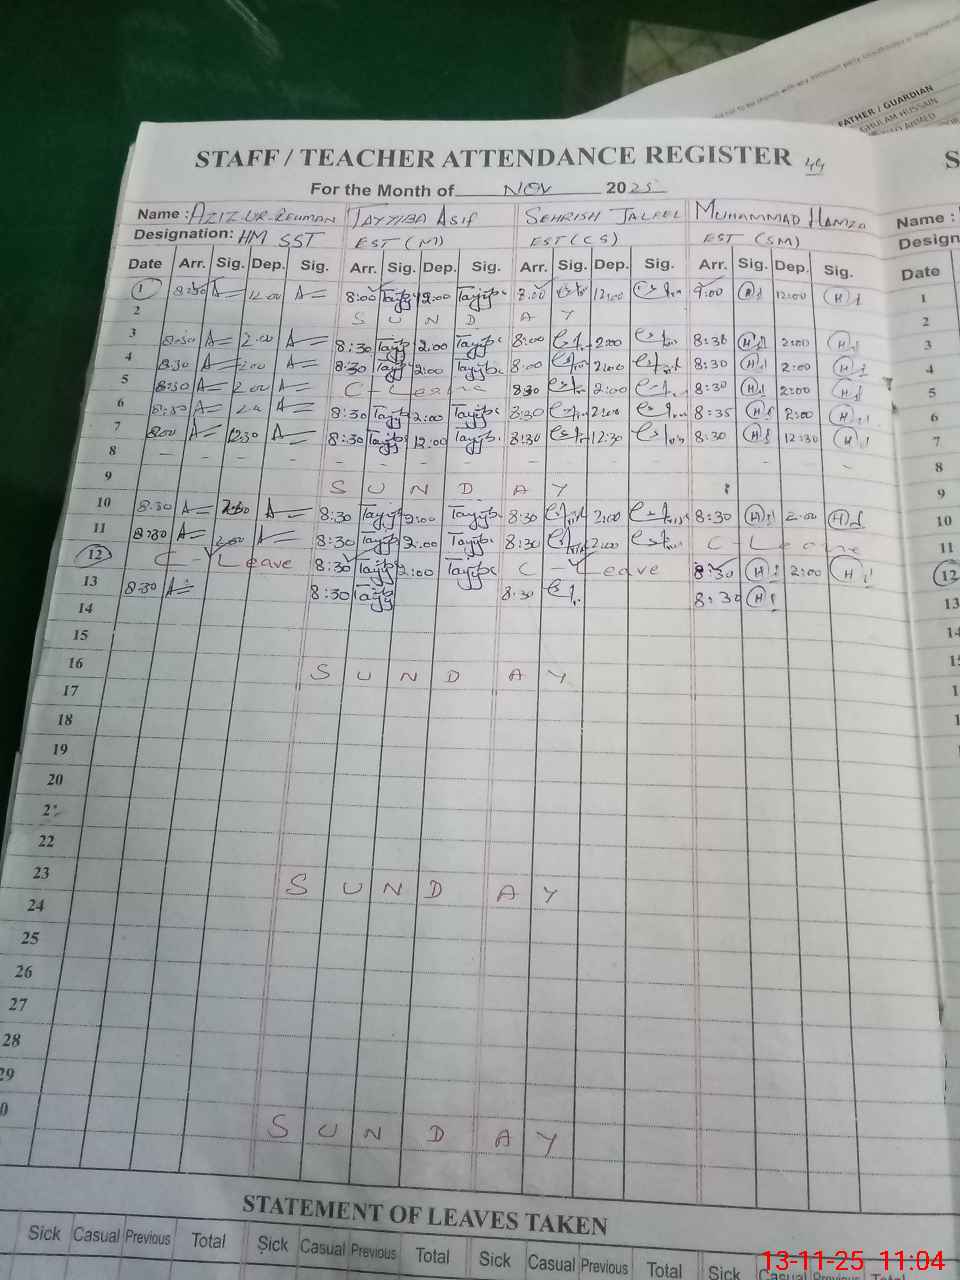 FATHER / GUARDIAN
GHULAM HUSSAIN
AHMED
STAFF / TEACHER ATTENDANCE REGISTER 44
For the Month of NOV 2025
Name : AZIZ-UR-REHMAN TAYYIBA ASIF SEHRISH JALEEL MUHAMMAD HAMZA Name :
Designation: HM SST EST (M) EST (CS) EST (SM)
Date Arr. Sig. Dep. Sig. Arr. Sig. Dep. Sig. Arr. Sig. Dep. Sig. Arr. Sig. Dep. Sig. Date
1 8:30 A 12.00 A 8:00 Tayyiba 12:00 Tayyiba 8:00 12:00 9:00 H 12:00 H 1
2 S U N D A Y 2
3 8:30 A 2.00 A 8:30 Tayyiba 2.00 Tayyiba 8:00 2:00 8:30 H 2:00 H 3
4 8:30 A 2.00 A 8:30 Tayyiba 2:00 Tayyiba 8:00 2:00 8:30 H 2:00 H 4
5 8:30 A 2.00 A C - Leave 8:30 2:00 8:30 H 2:00 H 5
6 8:30 A A 8:30 Tayyiba 2:00 Tayyiba 8:30 2:00 8:35 H 2:00 H 6
7 8:00 A 12:30 A 8:30 Tayyiba 12:00 Tayyiba 8:30 12:30 8:30 H 12:30 H 7
8 – – – – – – – – – – – 8
9 S U N D A Y 9
10 8.30 A 2.00 A 8:30 Tayyiba 2:00 Tayyiba 8:30 2:00 8:30 H 2:00 H 10
11 8:30 A 2.00 A 8:30 Tayyiba 2:00 Tayyiba 8:30 2:00 C - Leave 11
12 C - Leave 8:30 Tayyiba 2:00 Tayyiba C - Leave 8:30 H 2:00 H 12
13 8:30 A 8:30 Tayyiba 8:30 8:30 H 13
14 14
15
16 S U N D A Y
17
18
19
20
22
23 S U N D A Y
24
25
26
27
28
29
0 S U N D A Y
STATEMENT OF LEAVES TAKEN
Sick Casual Previous Total Sick Casual Previous Total Sick Casual Previous Total Sick Casual Previous
13-11-25 11:04